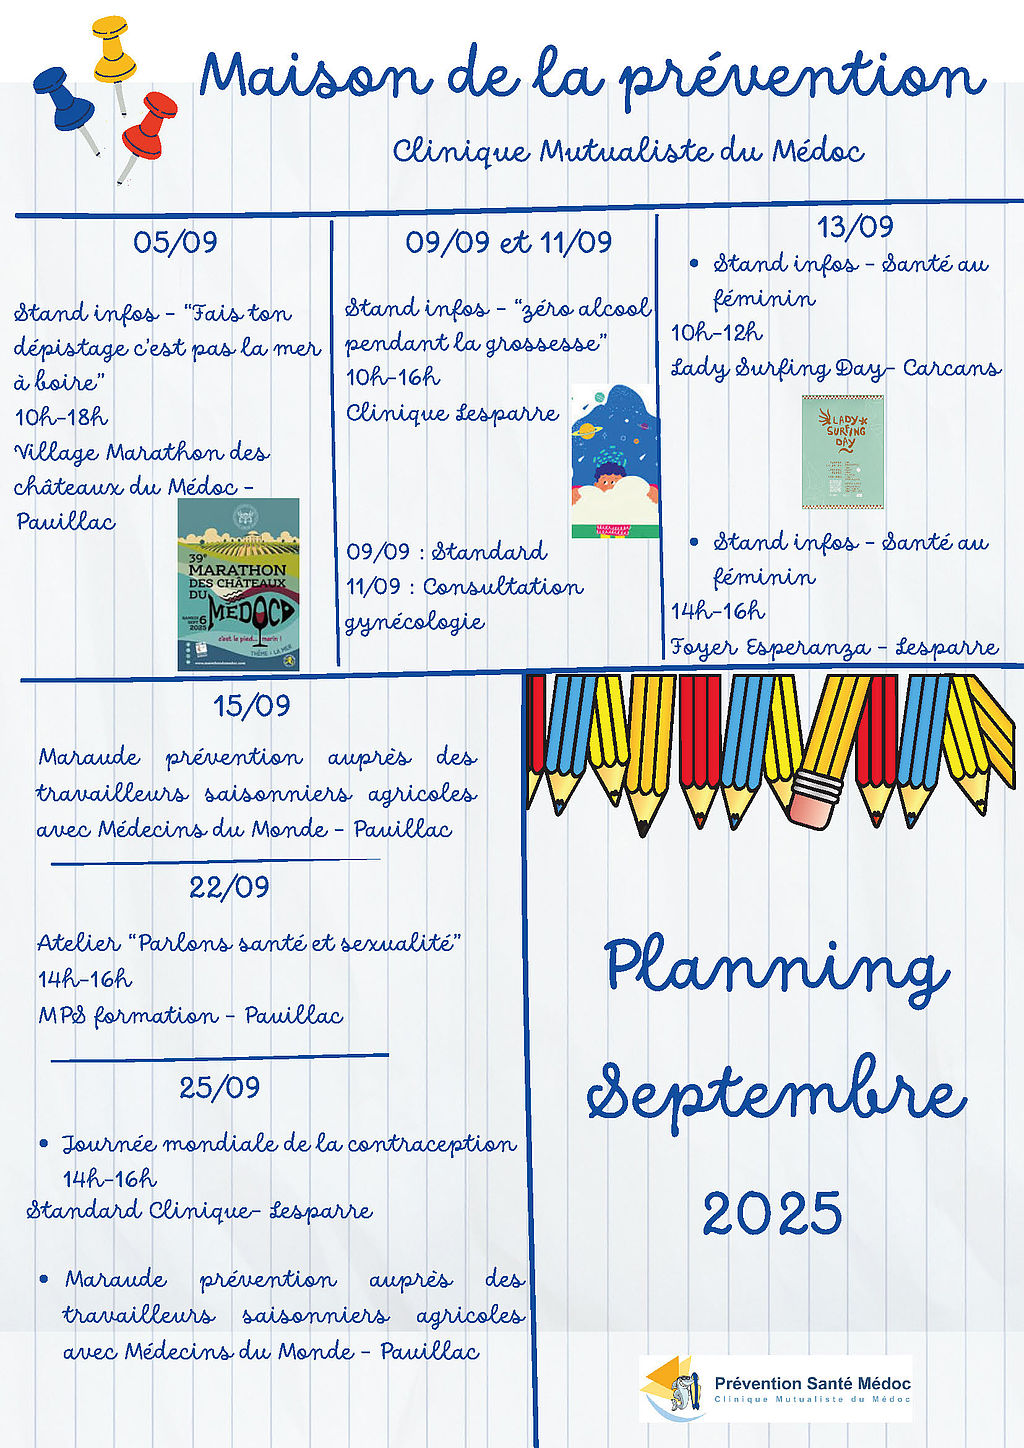 Maison de la prévention
Clinique Mutualiste du Médoc
05/09
Stand infos - "Fais ton
dépistage c'est pas la mer
à boire"
10h-18h
Village Marathon des
châteaux du Médoc -
Pauillac
39e
MARATHON
DES CHÂTEAUX
DU
MÉDOC
SAMEDI
SEPT 6
2025
c'est le pied... marin !
THÈME : LA MER
www.marathondumedoc.com
09/09 et 11/09
Stand infos - "zéro alcool
pendant la grossesse"
10h-16h
Clinique Lesparre
09/09 : Standard
11/09 : Consultation
gynécologie
13/09
• Stand infos - Santé au
féminin
10h-12h
Lady Surfing Day- Carcans
LADY
SURFING
DAY
• Stand infos - Santé au
féminin
14h-16h
Foyer Esperanza - Lesparre
15/09
Maraude prévention auprès des
travailleurs saisonniers agricoles
avec Médecins du Monde - Pauillac
22/09
Atelier "Parlons santé et sexualité"
14h-16h
MPS formation - Pauillac
25/09
• Journée mondiale de la contraception
14h-16h
Standard Clinique- Lesparre
• Maraude prévention auprès des
travailleurs saisonniers agricoles
avec Médecins du Monde - Pauillac
Planning
Septembre
2025
Prévention Santé Médoc
Clinique Mutualiste du Médoc